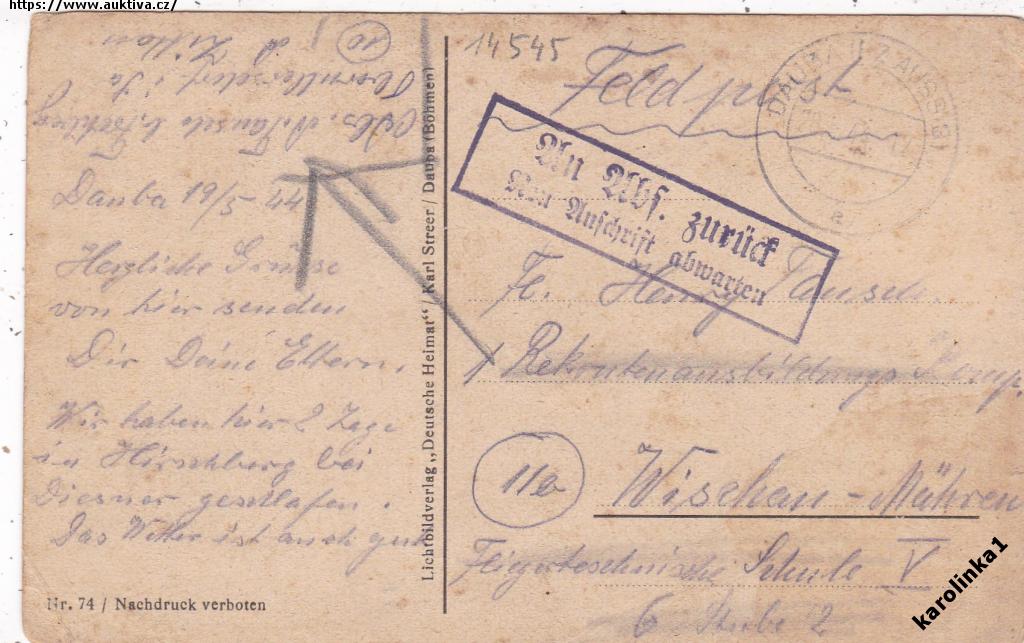 https://www.auktiva.cz/
10
Dauba 19/5 44
Herzliche Grüsse
von hier senden
Dir Deine Eltern.
Wir haben hier 2 Tage
in Hirschberg bei
Diesner geschlafen.
Das Wetter ist auch gut
Nr. 74 / Nachdruck verboten
Lichtbildverlag „Deutsche Heimat“ / Karl Streer / Dauba (Böhmen)
14545
Feldpost
An Abs. zurück
Neu Anschrift abwarten
Fl. Henry
1 Rekrutenausbildungs Komp.
11a
Wischau-Mähren
Fliegertechnische Schule V
6 Stube 2
karolinka1